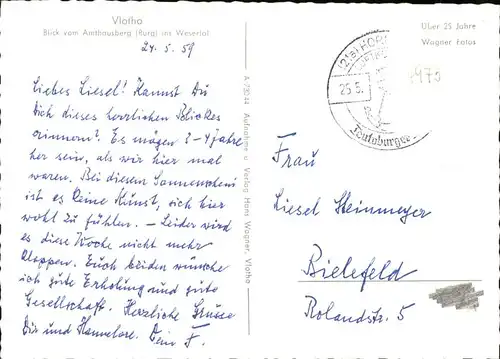 Vlotho
Blick vom Amthausberg (Burg) ins Wesertal
24. 5. 59
Liebes Liesel! Kannst Du
Dich dieses herrlichen Blickes
erinnern? Es mögen 3-4 Jahre
her sein, als wir hier mal
waren. Bei diesem Sonnenschein
ist es keine Kunst, sich hier
wohl zu fühlen. – Leider wird
es diese Woche nicht mehr
klappen. Euch beiden wünsche
ich gute Erholung und gute
Gesellschaft. Herzliche Grüsse
Dir und Hannelore. Dein F.
Aufnahme u. Verlag Hans Wagner, Vlotho
Über 25 Jahre
Wagner Fotos
(21a) HORN
25.5.
Teutoburger
1975
Frau
Liesel Steinmeyer
Bielefeld
Rolandstr. 5